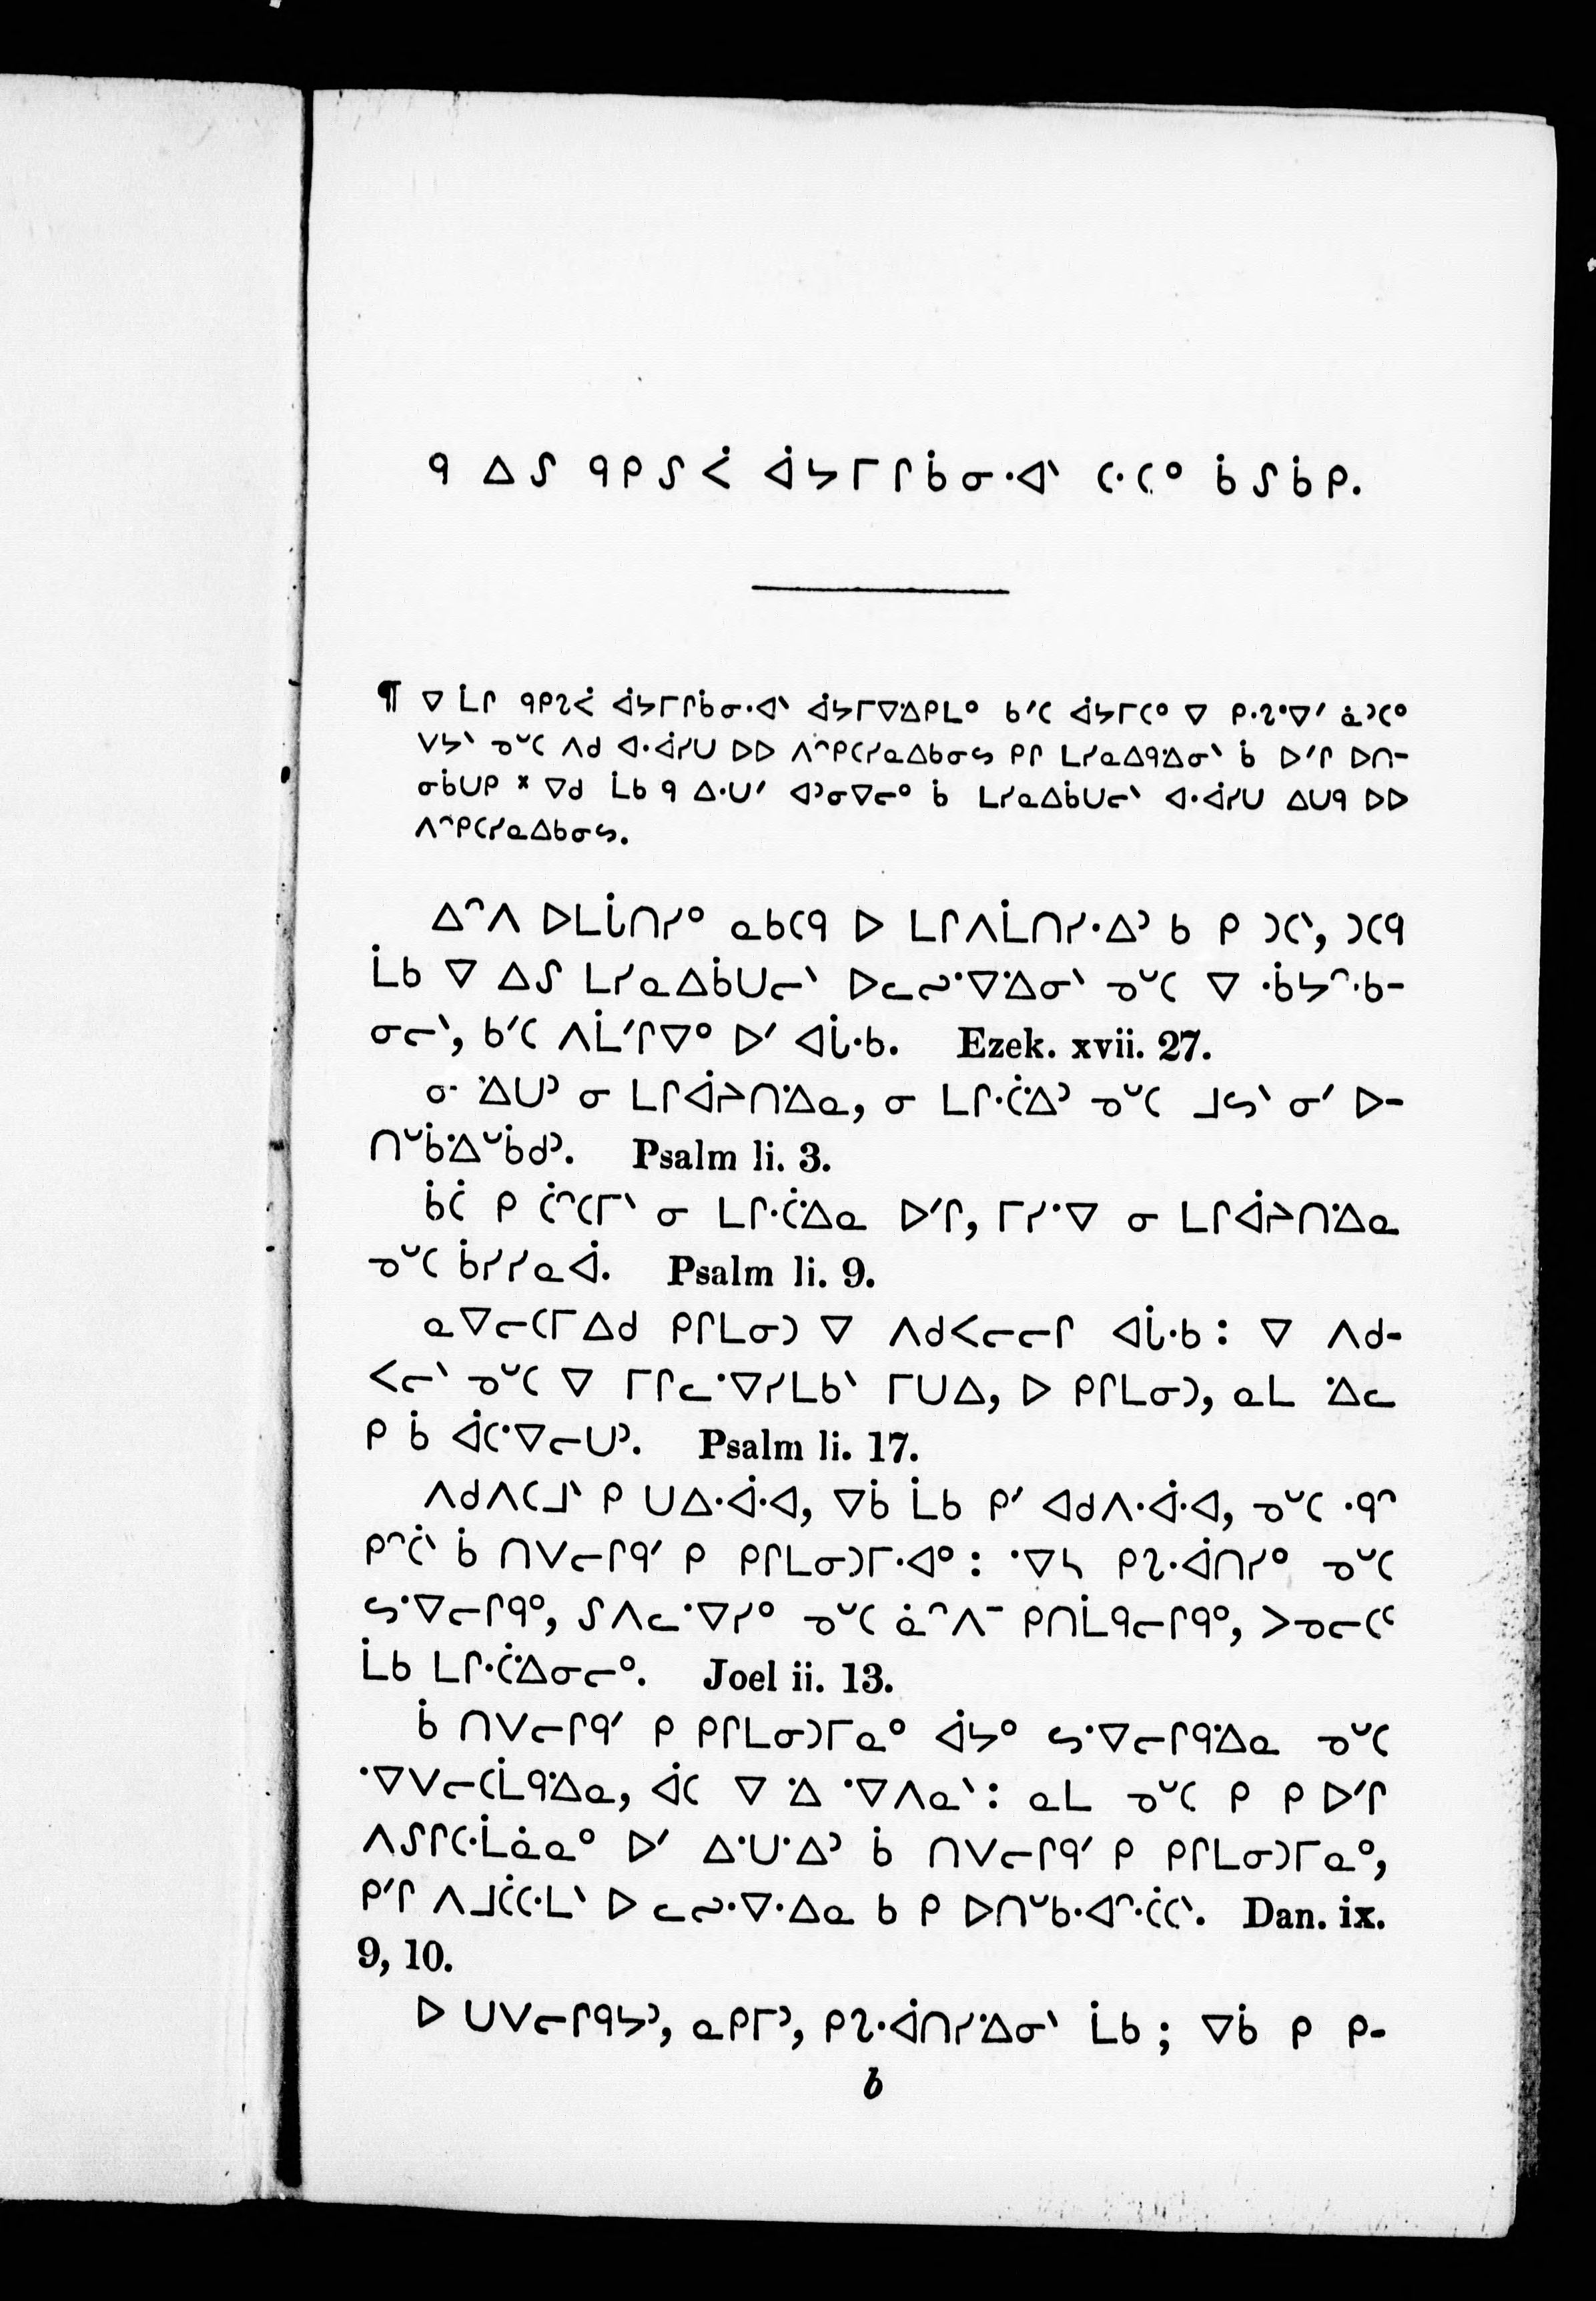 ᑫ ᐃᔑ ᑫᑭᔑᐹ ᐋᔭᒥᒋᑳᓂᐧᐊᐠ ᑕᐧᑕᐤ ᑳᔑᑳᑭ.
¶ ᐁ ᒫᒋ ᑫᑭᔐᐹ ᐋᔭᒥᒋᑳᓂᐧᐊᐠ ᐋᔭᒥᐁᐧᐃᑭᒪᐤ ᑲᐟᑕ ᐋᔭᒥᑕᐤ ᐁ ᑭᐧᔐᐤᐁᐟ ᓈᐣᑕᐤ
ᐯᔭᐠ ᓀᐢᑕ ᐱᑯ ᐊᐧᐋᓯᑌ ᐅᐅ ᐱᐢᑭᑕᓯᓇᐃᑲᓂᔕ ᑭᒋ ᒪᓯᓇᐃᑫᐧᐃᓂᐠ ᑳ ᐅᐟᒋ ᐅᑎ-
ᓂᑳᑌᑭ × ᐁᑯ ᒫᑲ ᑫ ᐃᐧᑌᐟ ᐊᐣᓂᐁᓕᐤ ᑳ ᒪᓯᓇᐃᑳᑌᓕᐠ ᐊᐧᐋᓯᑌ ᐃᑌᑫ ᐅᐅ
ᐱᐢᑭᑕᓯᓇᐃᑲᓂᔕ.
ᐃᐢᐱ ᐅᒪᒑᑎᓯᐤ ᓇᑲᑕᑫ ᐅ ᒪᒋᐱᒫᑎᓯᐧᐃᐣ ᑲ ᑭ ᑐᑕᐠ, ᑐᑕᑫ
ᒫᑲ ᐁ ᐃᔑ ᒪᓯᓇᐃᑳᑌᓕᐠ ᐅᓚᔓᐧᐁᐧᐃᓂᐠ ᓀᐢᑕ ᐁ ᐧᑳᔭᐢᐧᑲ-
ᓂᓕᐠ, ᑲᐟᑕ ᐱᒫᐟᒋᐁᐤ ᐅᐟ ᐊᒑᐧᑲ. Ezek. xvii. 27.
ᓂ ᐧᐃᑌᐣ ᓂ ᒪᒋᐋᔨᑎᐧᐃᓇ, ᓂ ᒪᒋᐧᑖᐧᐃᐣ ᓀᐢᑕ ᒧᔕᐠ ᓂᐟ ᐅ-
ᑎᐢᑳᐧᐃᐢᑳᑯᐣ. Psalm li. 3.
ᑳᑖ ᑭ ᑖᐢᑕᒥᐠ ᓂ ᒪᒋᐧᑖᐧᐃᓇ ᐅᐟᒋ, ᒥᓯᐧᐁ ᓂ ᒪᒋᐋᔨᑎᐧᐃᓇ
ᓀᐢᑕ ᑳᓯᓯᓇᐋ. Psalm li. 9.
ᓇᐁᓕᑕᒥᐃᑯ ᑭᒋᒪᓂᑐ ᐁ ᐱᑯᐸᓕᓕᒋ ᐊᒑᐧᑲ : ᐁ ᐱᑯ-
ᐸᓕᐠ ᓀᐢᑕ ᐁ ᒥᒋᓚᐧᐁᓯᒪᑲᐠ ᒥᑌᐃ, ᐅ ᑭᒋᒪᓂᑐ, ᓇᒪ ᐧᐃᓚ
ᑭ ᑳ ᐋᑕᐧᐁᓕᑌᐣ. Psalm li. 17.
ᐱᑯᐱᑕᒧᐠ ᑭ ᑌᐃᐧᐋᐧᐊ, ᐁᑳ ᒫᑲ ᑭᐟ ᐊᑯᐱᐧᐋᐧᐊ, ᓀᐢᑕ ᐧᑫᐢ
ᑭᐢᑖᐠ ᑳ ᑎᐯᓕᒋᑫᐟ ᑭ ᑭᒋᒪᓂᑐᒥᐧᐊᐤ : ᐧᐁᓴ ᑭᔐᐧᐋᑎᓯᐤ ᓀᐢᑕ
ᔕᐧᐁᓕᒋᑫᐤ, ᔑᐱᓚᐧᐁᓯᐤ ᓀᐢᑕ ᓈᐢᐱᐨ ᑭᑎᒫᑫᓕᒋᑫᐤ, ᐳᓀᓕᑕᒼ
ᒫᑲ ᒪᒋᐧᑖᐧᐃᓂᓕᐤ. Joel ii. 13.
ᑳ ᑎᐯᓕᒋᑫᐟ ᑭ ᑭᒋᒪᓂᑐᒥᓇᐤ ᐋᔭᐤ ᔕᐧᐁᓕᒋᑫᐧᐃᓇ ᓀᐢᑕ
ᐧᐁᐯᓕᑕᒫᑫᐧᐃᓇ, ᐋᑕ ᐁ ᐧᐃ ᐧᐁᐱᓇᐠ : ᓇᒪ ᓀᐢᑕ ᑭ ᑭ ᐅᐟᒋ
ᐱᔑᒋᑕᐧᒫᓈᓇᐤ ᐅᐟ ᐃᐧᑌᐧᐃᐣ ᑳ ᑎᐯᓕᒋᑫᐟ ᑭ ᑭᒋᒪᓂᑐᒥᓇᐤ,
ᑭᐟᒋ ᐱᒧᑖᑕᐧᒪᐠ ᐅ ᓚᔓᐧᐁᐧᐃᓇ ᑲ ᑭ ᐅᑎᐢᑲᐧᐊᐢᐧᑖᑕᐠ. Dan. ix.
9, 10.
ᐅ ᑌᐯᓕᒋᑫᔭᐣ, ᓇᑭᒥᐣ, ᑭᔐᐧᐋᑎᓯᐧᐃᓂᐠ ᒫᑲ ; ᐁᑳ ᑭ ᑭ-
b